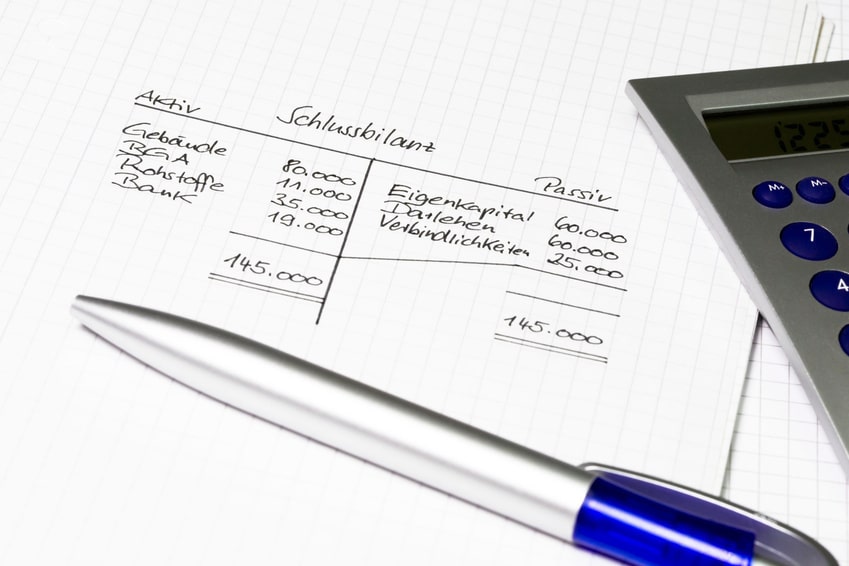 Schlussbilanz
Aktiv
Gebäude 80.000
BGA 11.000
Rohstoffe 35.000
Bank 19.000
145.000
Passiv
Eigenkapital 60.000
Darlehen 60.000
Verbindlichkeiten 25.000
145.000
1225
M+ M-
7
4